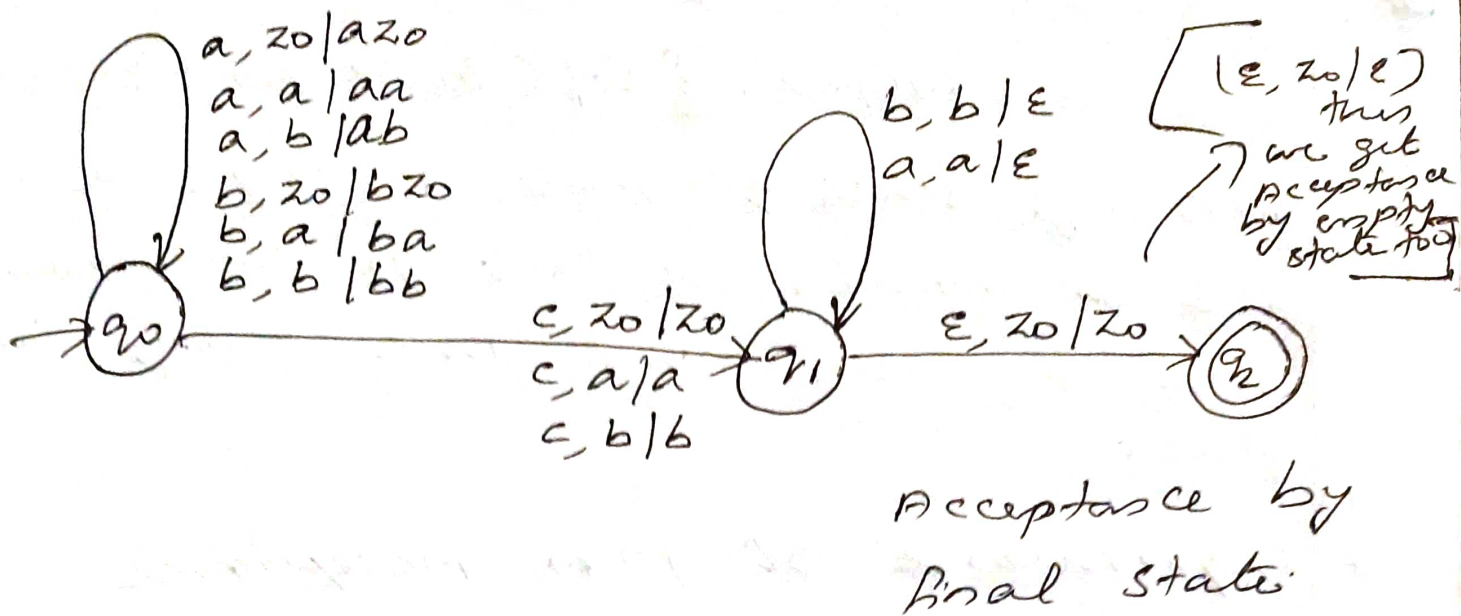 a, z0 | az0
a, a | aa
a, b | ab
b, z0 | bz0
b, a | ba
b, b | bb
q0
c, z0 | z0
c, a | a
c, b | b
b, b | ε
a, a | ε
q1
ε, z0 | z0
q2
(ε, z0 | ε)
thus
we get
Acceptance
by empty
state too
Acceptance by
final state.